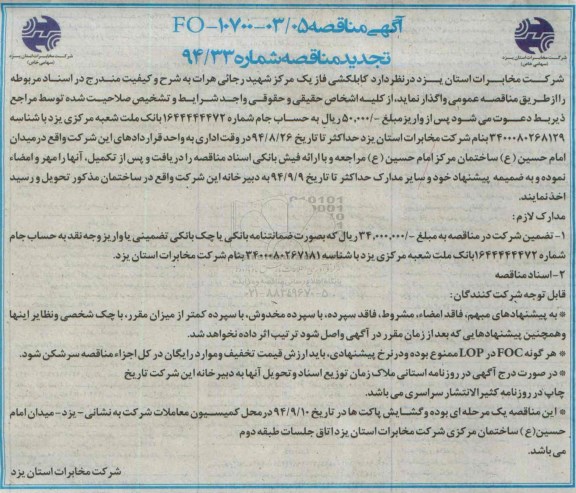 آگهی مناقصه FO-۱۰۷۰۰-۰۳/۰۵
تجدید مناقصه شماره ۹۴/۳۳
شرکت مخابرات استان یزد
(سهامی خاص)
شرکت مخابرات استان یزد
(سهامی خاص)
شرکت مخابرات استان یزد درنظردارد کابلکشی فازیک مرکز شهید رجائی هرات به شرح و کیفیت مندرج در اسناد مربوطه
را از طریق مناقصه عمومی واگذار نماید، از کلیه اشخاص حقیقی و حقوقی واجد شرایط و تشخیص صلاحیت شده توسط مراجع
ذیربط دعوت می شود پس از واریز مبلغ -/۵۰,۰۰۰ ریال به حساب جام شماره ۱۶۴۴۴۴۴۴۷۲ بانک ملت شعبه مرکزی یزد با شناسه
۳۴۰۰۰۸۰۲۶۸۱۲۹ بنام شرکت مخابرات استان یزد حداکثر تا تاریخ ۹۴/۸/۲۶ در وقت اداری به واحد قراردادهای این شرکت واقع در میدان
امام حسین (ع) ساختمان مرکز امام حسین (ع) مراجعه و با ارائه فیش بانکی اسناد مناقصه را دریافت و پس از تکمیل، آنها را مهر و امضاء
نموده و به ضمیمه پیشنهاد خود و سایر مدارک حداکثر تا تاریخ ۹۴/۹/۹ به دبیرخانه این شرکت واقع در ساختمان مذکور تحویل و رسید
اخذ نمایند.
مدارک لازم:
۱- تضمین شرکت در مناقصه به مبلغ -/۳۴,۰۰۰,۰۰۰ ریال که بصورت ضمانتنامه بانکی یا چک بانکی تضمینی یا واریز وجه نقد به حساب جام
شماره ۱۶۴۴۴۴۴۴۷۲ بانک ملت شعبه مرکزی یزد با شناسه ۳۴۰۰۰۸۰۲۶۷۱۸۱ بنام شرکت مخابرات استان یزد.
۲- اسناد مناقصه
قابل توجه شرکت کنندگان:
* به پیشنهادهای مبهم، فاقد امضاء، مشروط، فاقد سپرده، با سپرده مخدوش، با سپرده کمتر از میزان مقرر، با چک شخصی و نظایر اینها
و همچنین پیشنهادهایی که بعد از زمان مقرر در آگهی واصل شود ترتیب اثر داده نخواهد شد.
* هر گونه FOC در LOP ممنوع بوده و در نرخ پیشنهادی، باید ارزش قیمت تخفیف و موارد رایگان در کل اجزاء مناقصه سرشکن شود.
* در صورت درج آگهی در روزنامه استانی ملاک زمان توزیع اسناد و تحویل آنها به دبیرخانه این شرکت تاریخ
چاپ در روزنامه کثیرالانتشار سراسری می باشد.
* این مناقصه یک مرحله ای بوده و گشایش پاکت ها در تاریخ ۹۴/۹/۱۰ در محل کمیسیون معاملات شرکت به نشانی - یزد - میدان امام
حسین(ع) ساختمان مرکزی شرکت مخابرات استان یزد اتاق جلسات طبقه دوم
می باشد.
شرکت مخابرات استان یزد